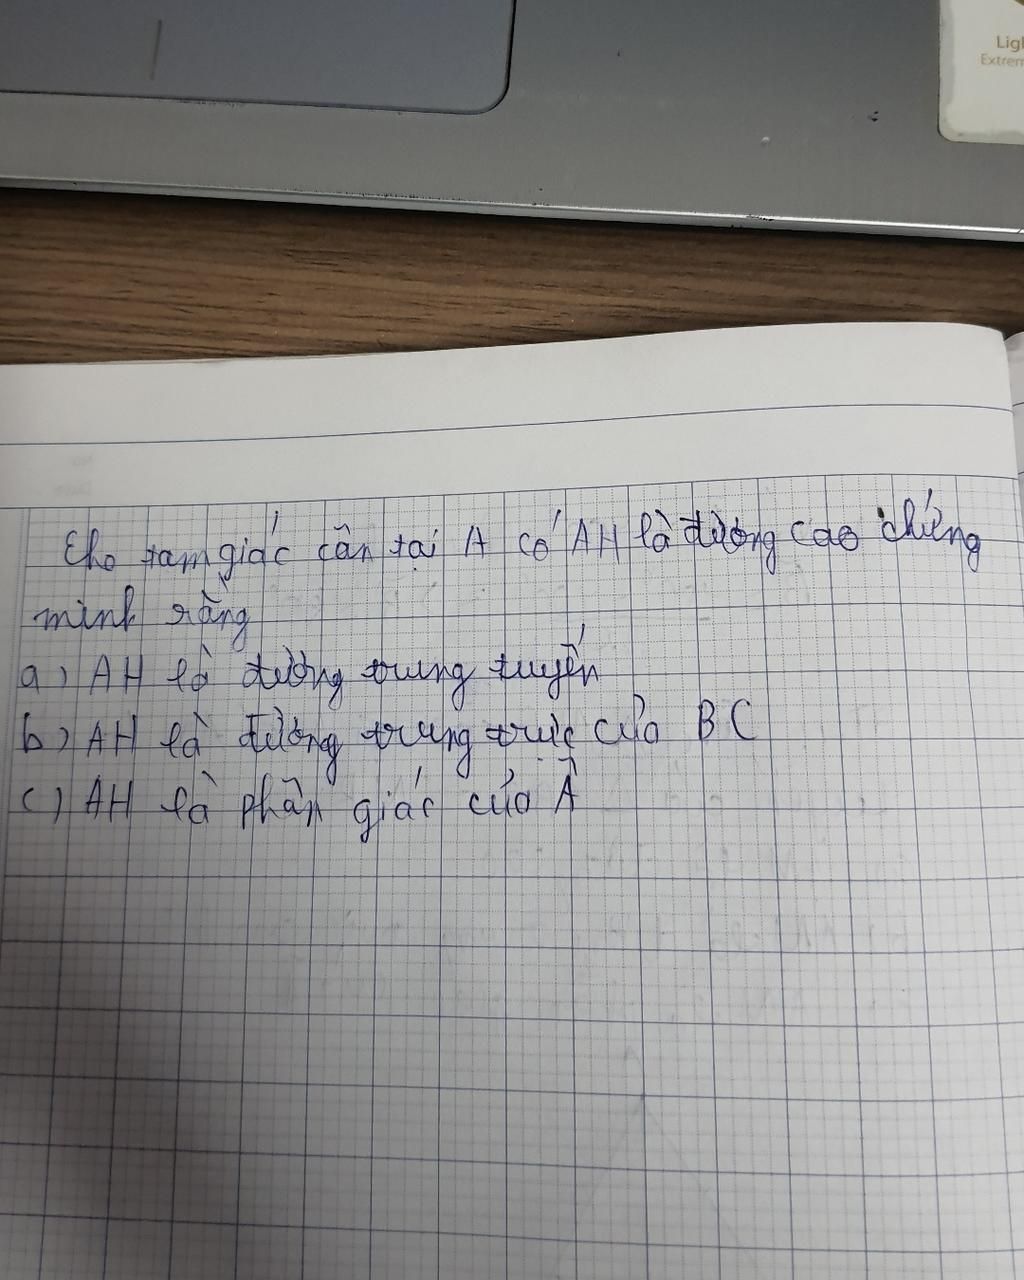 Ligh
Extrem
Cho tam giác cân tại A có AH là đường cao chứng
minh rằng
a) AH là đường trung tuyến
b) AH là đường trung trực của BC
c) AH là phân giác của Â